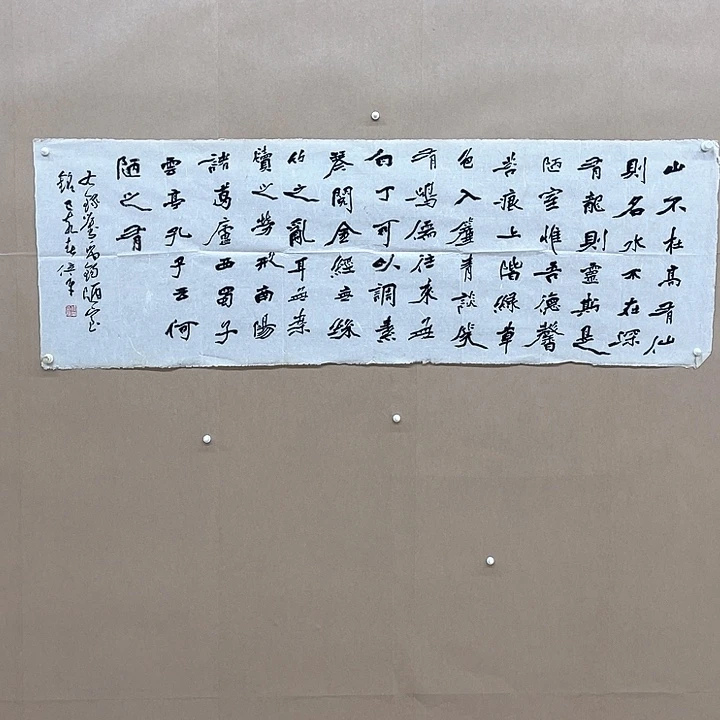 山不在高有仙
則名水不在深
有龍則靈斯是
陋室惟吾德馨
苔痕上階綠草
色入簾青談笑
有鴻儒往來無
白丁可以調素
琴閱金經無絲
竹之亂耳無案
牘之勞形南陽
諸葛廬西蜀子
雲亭孔子云何
陋之有
右錄劉禹錫陋室
銘